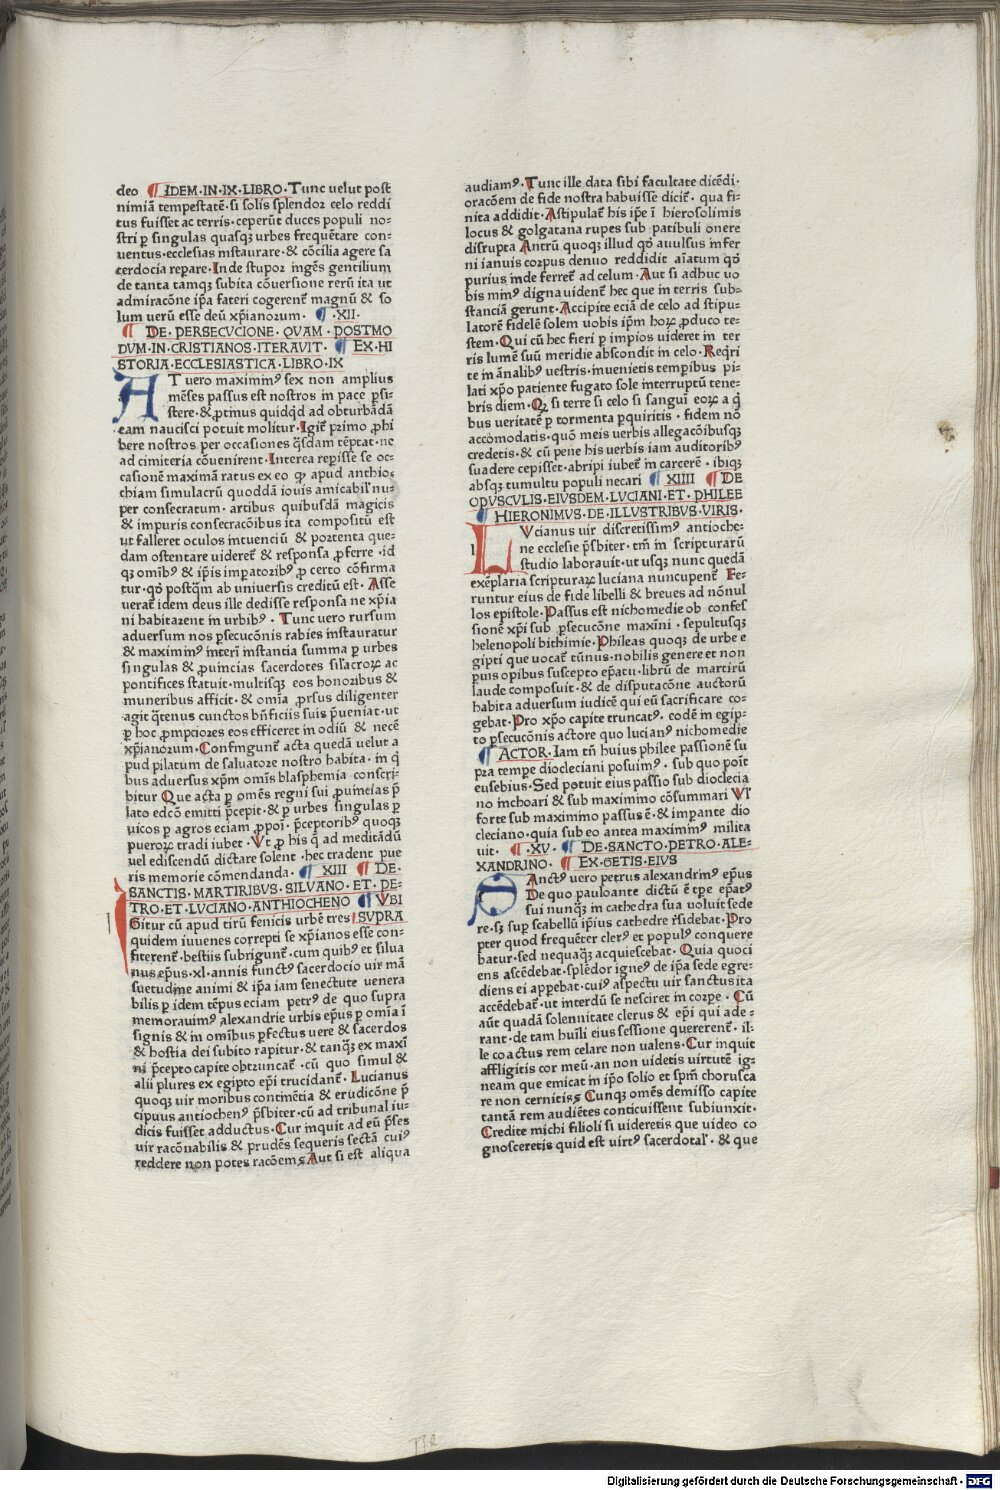 deo ¶ IDEM·IN·IX·LIBRO·Tunc velut post
nimiā tempestatē·si solis splendor celo reddi
tus fuisset ac terris·ceperūt duces populi no=
stri p̱ singulas quasqȝ urbes frequētare con=
uentus·ecclesias instaurare·& cōcilia agere sa
cerdocia reparare·Inde stupor ingēs gentilium
de tanta tamqȝ subita cōuersione rerū ita ut
admiracōne ip̄a fateri cogerent magnū & so
lum uerū esse deū xp̄ianorum· ¶ ·XII·
¶ DE·PERSECVCIONE·QVAM·POSTMO
DVM·IN·CRISTIANOS·ITERAVIT· ¶ EX·HI
STORIA·ECCLESIASTICA·LIBRO·IX
AT uero maximinꝰ sex non amplius
mēses passus est nostros in pace p̄si=
stere·& ꝓtinus quidq̇d ad obturbādā
eam naucisci potuit molitur·Igit᷑ primo ꝓhi
bere nostros per occasiones q̇sdam tēptat·ne
ad cimiteria cōuenirent·Interea rep̄isse se oc=
casionē maximā ratus ex eo qp̱ apud anthio=
chiam simulacrū quoddā iouis amicabil᷑ nu=
per consecratum· artibus quibusdā magicis
& impuris consecracōibus ita compositū est
ut falleret oculos intuenciū & portenta que=
dam ostentare uideret᷑ & responsa ꝓferre·id
qȝ omībꝰ & ip̄is imp̱atoribꝰ ꝓ certo cōfirma
tur·qꝺ postq̄m ab uniuersis creditū est· Asse
uerat᷑ idem deus ille dedisse responsa ne xp̄ia
ni habitarent in urbibꝰ · Tunc uero rursum
aduersum nos p̱secucōnis rabies instauratur
& maximinꝰ interī instantia summa p̱ urbes
singulas & ꝓuincias sacerdotes silacroꝝ ac
pontifices statuit·multisqȝ eos honoribus &
muneribus afficit·& omīa ꝓrsus diligenter
agit q̄tenus cunctos bn̄ficiis suis p̄ueniat·ut
p̱ hoc ꝓmpciores eos efficeret in odiū & necē
xp̄ianorum·Confingunt᷑ acta quedā velut a
pud pilatum de saluatore nostro habita·in q̇
bus aduersus xp̄m omīs blasphemia conscri=
bitur Que acta p̱ omēs regni sui ꝓuincias p̄
lato edcō emitti p̄cepit·& p̱ urbes singulas p̱
uicos p̱ agros eciam ꝓpoī· p̄ceptoribꝰ quoqȝ
pueroꝝ tradi iubet·Vt ꝓ his q̄ ad meditādū
uel ediscendū dictare solent·hec tradent pue
ris memorie cōmendanda· ¶ XIII ¶ DE·
SANCTIS·MARTIRIBVS·SILVANO·ET·PE=
TRO·ET·LVCIANO·ANTHIOCHENO ¶ VBI
Gitur cū apud tirū fenicis urbē tres SVPRA
quidem iuuenes correpti se xp̄ianos esse con=
fiterent᷑·bestiis subrigunt᷑·cum quibꝰ et silua
nus ep̄us·xl·annis functꝰ sacerdocio uir mā
suetudine animi & ip̄a iam senectute uenera
bilis p̱ idem tēpus eciam petrꝰ de quo supra
memorauimꝰ alexandrie urbis ep̄us p̱ omīa ī
signis & in omībus p̱fectus uere & sacerdos
& hostia dei subito rapitur·& tanq̄ȝ ex maxī
ni p̄cepto capite obtruncat᷑ ·cū quo simul &
alii plures ex egipto ep̄i trucidant᷑· Lucianus
quoqȝ uir moribus continētia & erudicōne p̄
cipuus antiochenꝰ p̄sbiter·cū ad tribunal iu=
dicis fuisset adductus·Cur inquit ad eū p̄ses
uir racōnabilis & prudēs sequeris sectā cuiꝰ
reddere non potes racōem Aut si est aliqua
audiamꝰ·Tunc ille data sibi facultate dicēdi·
oracōem de fide nostra habuisse dicit᷑· qua fi=
nita addidit·Astipulat᷑ his ip̄e ī hierosolimis
locus & golgatana rupes sub patibuli onere
disrupta Antrū quoqȝ illud qꝺ auulsus infer
ni ianuis corpus denuo reddidit aīatum qꝺ
purius inde ferret᷑ ad celum·Aut si adhuc uo
bis minꝰ digna uident᷑ hec que in terris sub=
stanciā gerunt·Accipite eciā de celo ad stipu=
latorē fidelē solem uobis ip̄m hoꝝ ꝓduco te=
stem·Qui cū hec fieri p̱ impios uideret in ter
ris lumē suū meridie abscondit in celo·Reqri
te in ānalibꝰ uestris·inuenietis temp̱ibus pi=
lati xp̄o patiente fugato sole interruptū tene=
bris diem·Qȝ si terre si celo si sangui eoꝝ a q̇
bus veritatē p̱ tormenta pquiritis · fidem nō
accomodatis·quō meis uerbis allegacōibusqȝ
credetis·& cū pene his uerbis iam auditoribꝰ
suadere cepisset·abripi iubet᷑ in carcerē·ibiqȝ
absqȝ tumultu populi necari ¶ XIIII ¶ DE
OPVSCVLIS·EIVSDEM·LVCIANI·ET·PHILEE
¶ HIERONIMVS·DE·ILLVSTRIBVS·VIRIS·
LVcianus uir discretissimꝰ antioche=
ne ecclesie p̄sbiter·tm̄ in scripturarū
studio laborauit·ut usqȝ nunc quedā
exēplaria scripturaꝝ luciana nuncupent᷑ Fe=
runtur eius de fide libelli & breues ad nōnul
los epistole·Passus est nichomedie ob confes
sionē xp̄i sub p̱secucōne maxīni·sepultusqȝ
helenopoli bithimie·Phileas quoqȝ de urbe e
gipti que uocat᷑ tūnus·nobilis genere et non
p̱uis opibus suscepto ep̄atu·librū de martirū
laude composuit·& de disputacōne auctorū
habita aduersum iudicē qui eū sacrificare co=
gebat·Pro xp̄o capite truncatꝰ· codē in egip=
to p̱secucōnis actore quo lucianꝰ nichomedie
¶ ACTOR·Iam tn̄ huius philee passionē su
pra temp̱e diocleciani posuimꝰ·sub quo poīt
eusebius·Sed potuit eius passio sub dioclecia
no inchoari & sub maximino cōsummari Vl᷑
forte sub maximino passus ē·& imp̱ante dio
cleciano·quia sub eo antea maximinꝰ milita
uit· ¶ ·XV· ¶ DE·SANCTO·PETRO·ALE=
XANDRINO· ¶ EX·GETIS·EIVS
SAnctꝰ uero petrus alexandrinꝰ ep̄us
De quo pauloante dictū ē tp̱e ep̄atꝰ
sui nunqȝ in cathedra sua voluit sede
re·sȝ sup̱ scabellū ip̄ius cathedre r̄sidebat·Pro
pter quod frequēter clerꝰ et populꝰ conquere
batur·sed nequaqȝ acquiescebat· Quia quoci
ens ascēdebat·splēdor igneꝰ de ip̄a sede egre=
diens ei app̱ebat·cuiꝰ aspectu uir sanctus ita
accēdebat᷑·ut interdū se nesciret in corpe· Cū
aūt quadā solennitate clerus & ep̄i qui ade=
rant·de tam huīli eius sessione quererent᷑· il=
le coactus rem celare non ualens·Cur inquit
affligitis cor meū·an non uidetis uirtutē ig=
neam que emicat in ip̄o solio et sp̄m chorusca
re non cernitis Cunqȝ omēs demisso capite
tantā rem audiētes conticuissent subiunxit·
Credite michi filioli si uideretis que uideo co
gnosceretis quid est uirtꝰ sacerdotal᷑ · & que
Digitalisierung gefördert durch die Deutsche Forschungsgemeinschaft · DFG